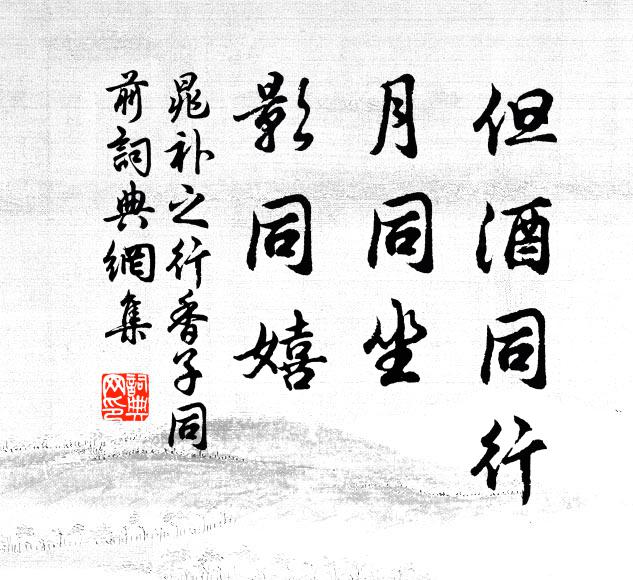 但酒同行
月同坐
影同嬉
晁补之行香子同
前詞典網集
詞典
网印